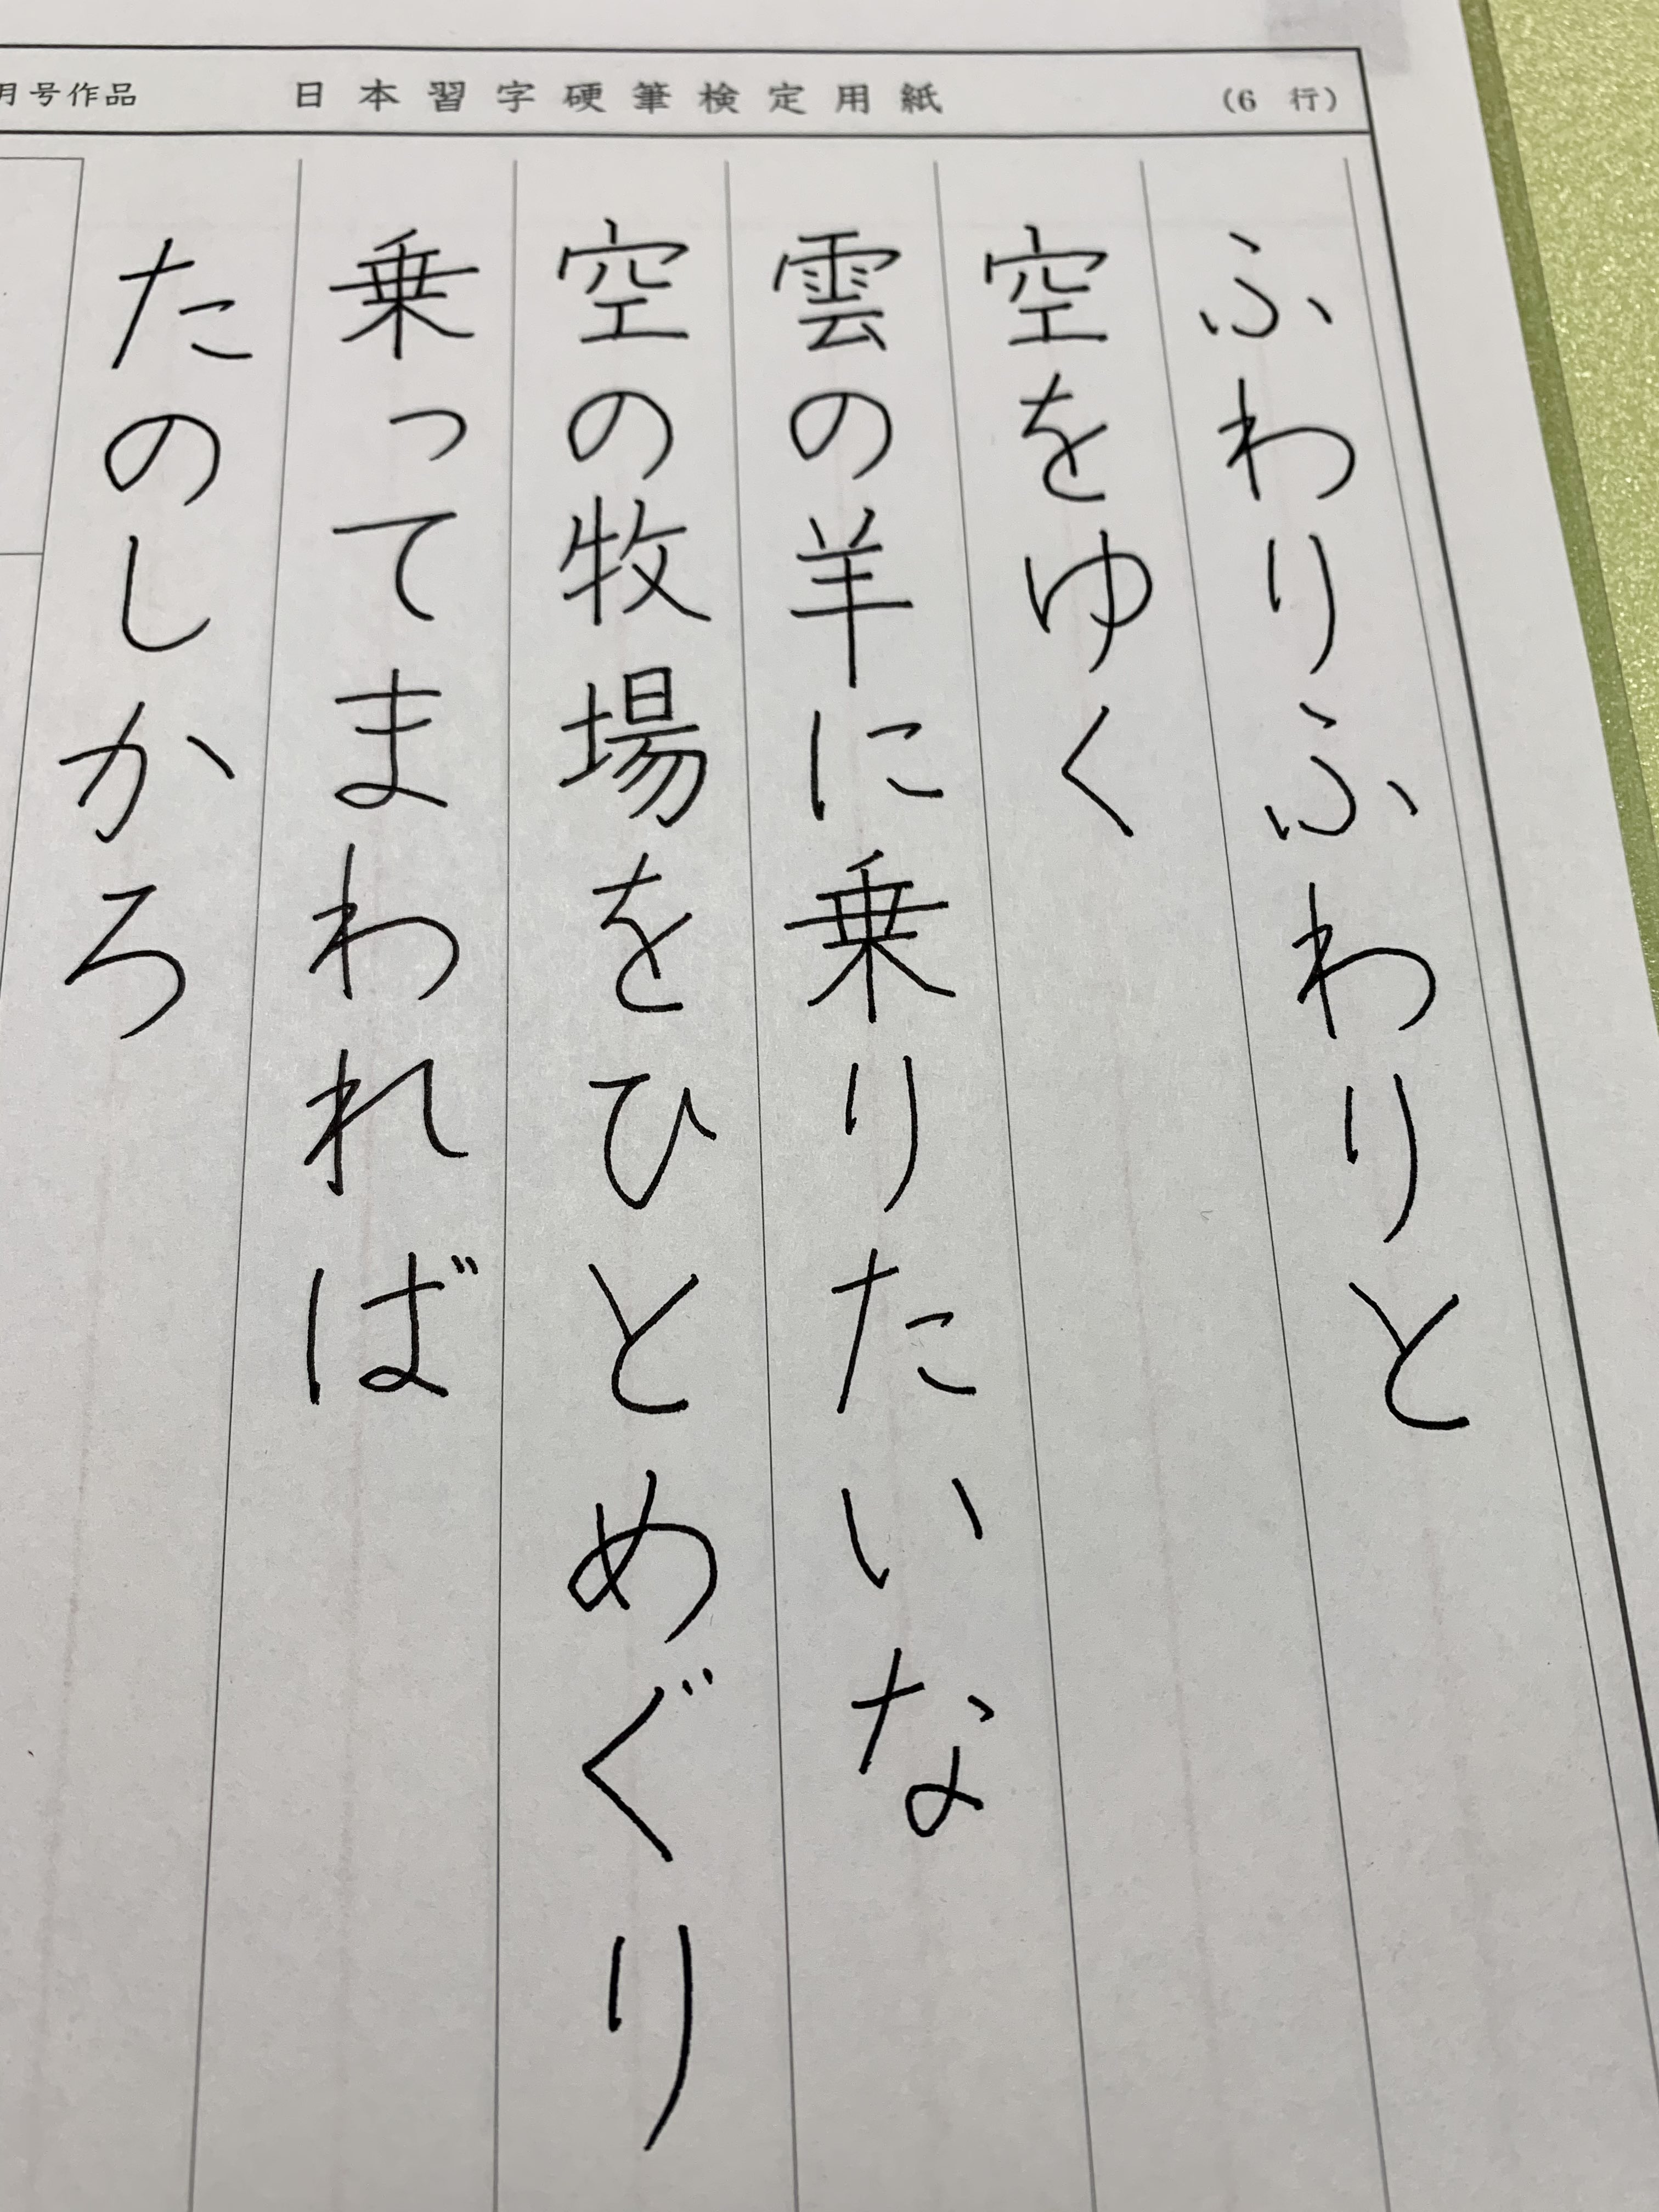 月号作品 日本習字硬筆検定用紙 (6 行)
ふわりふわりと
空をゆく
雲の羊に乗りたいな
空の牧場をひとめぐり
乗ってまわれば
たのしかろ